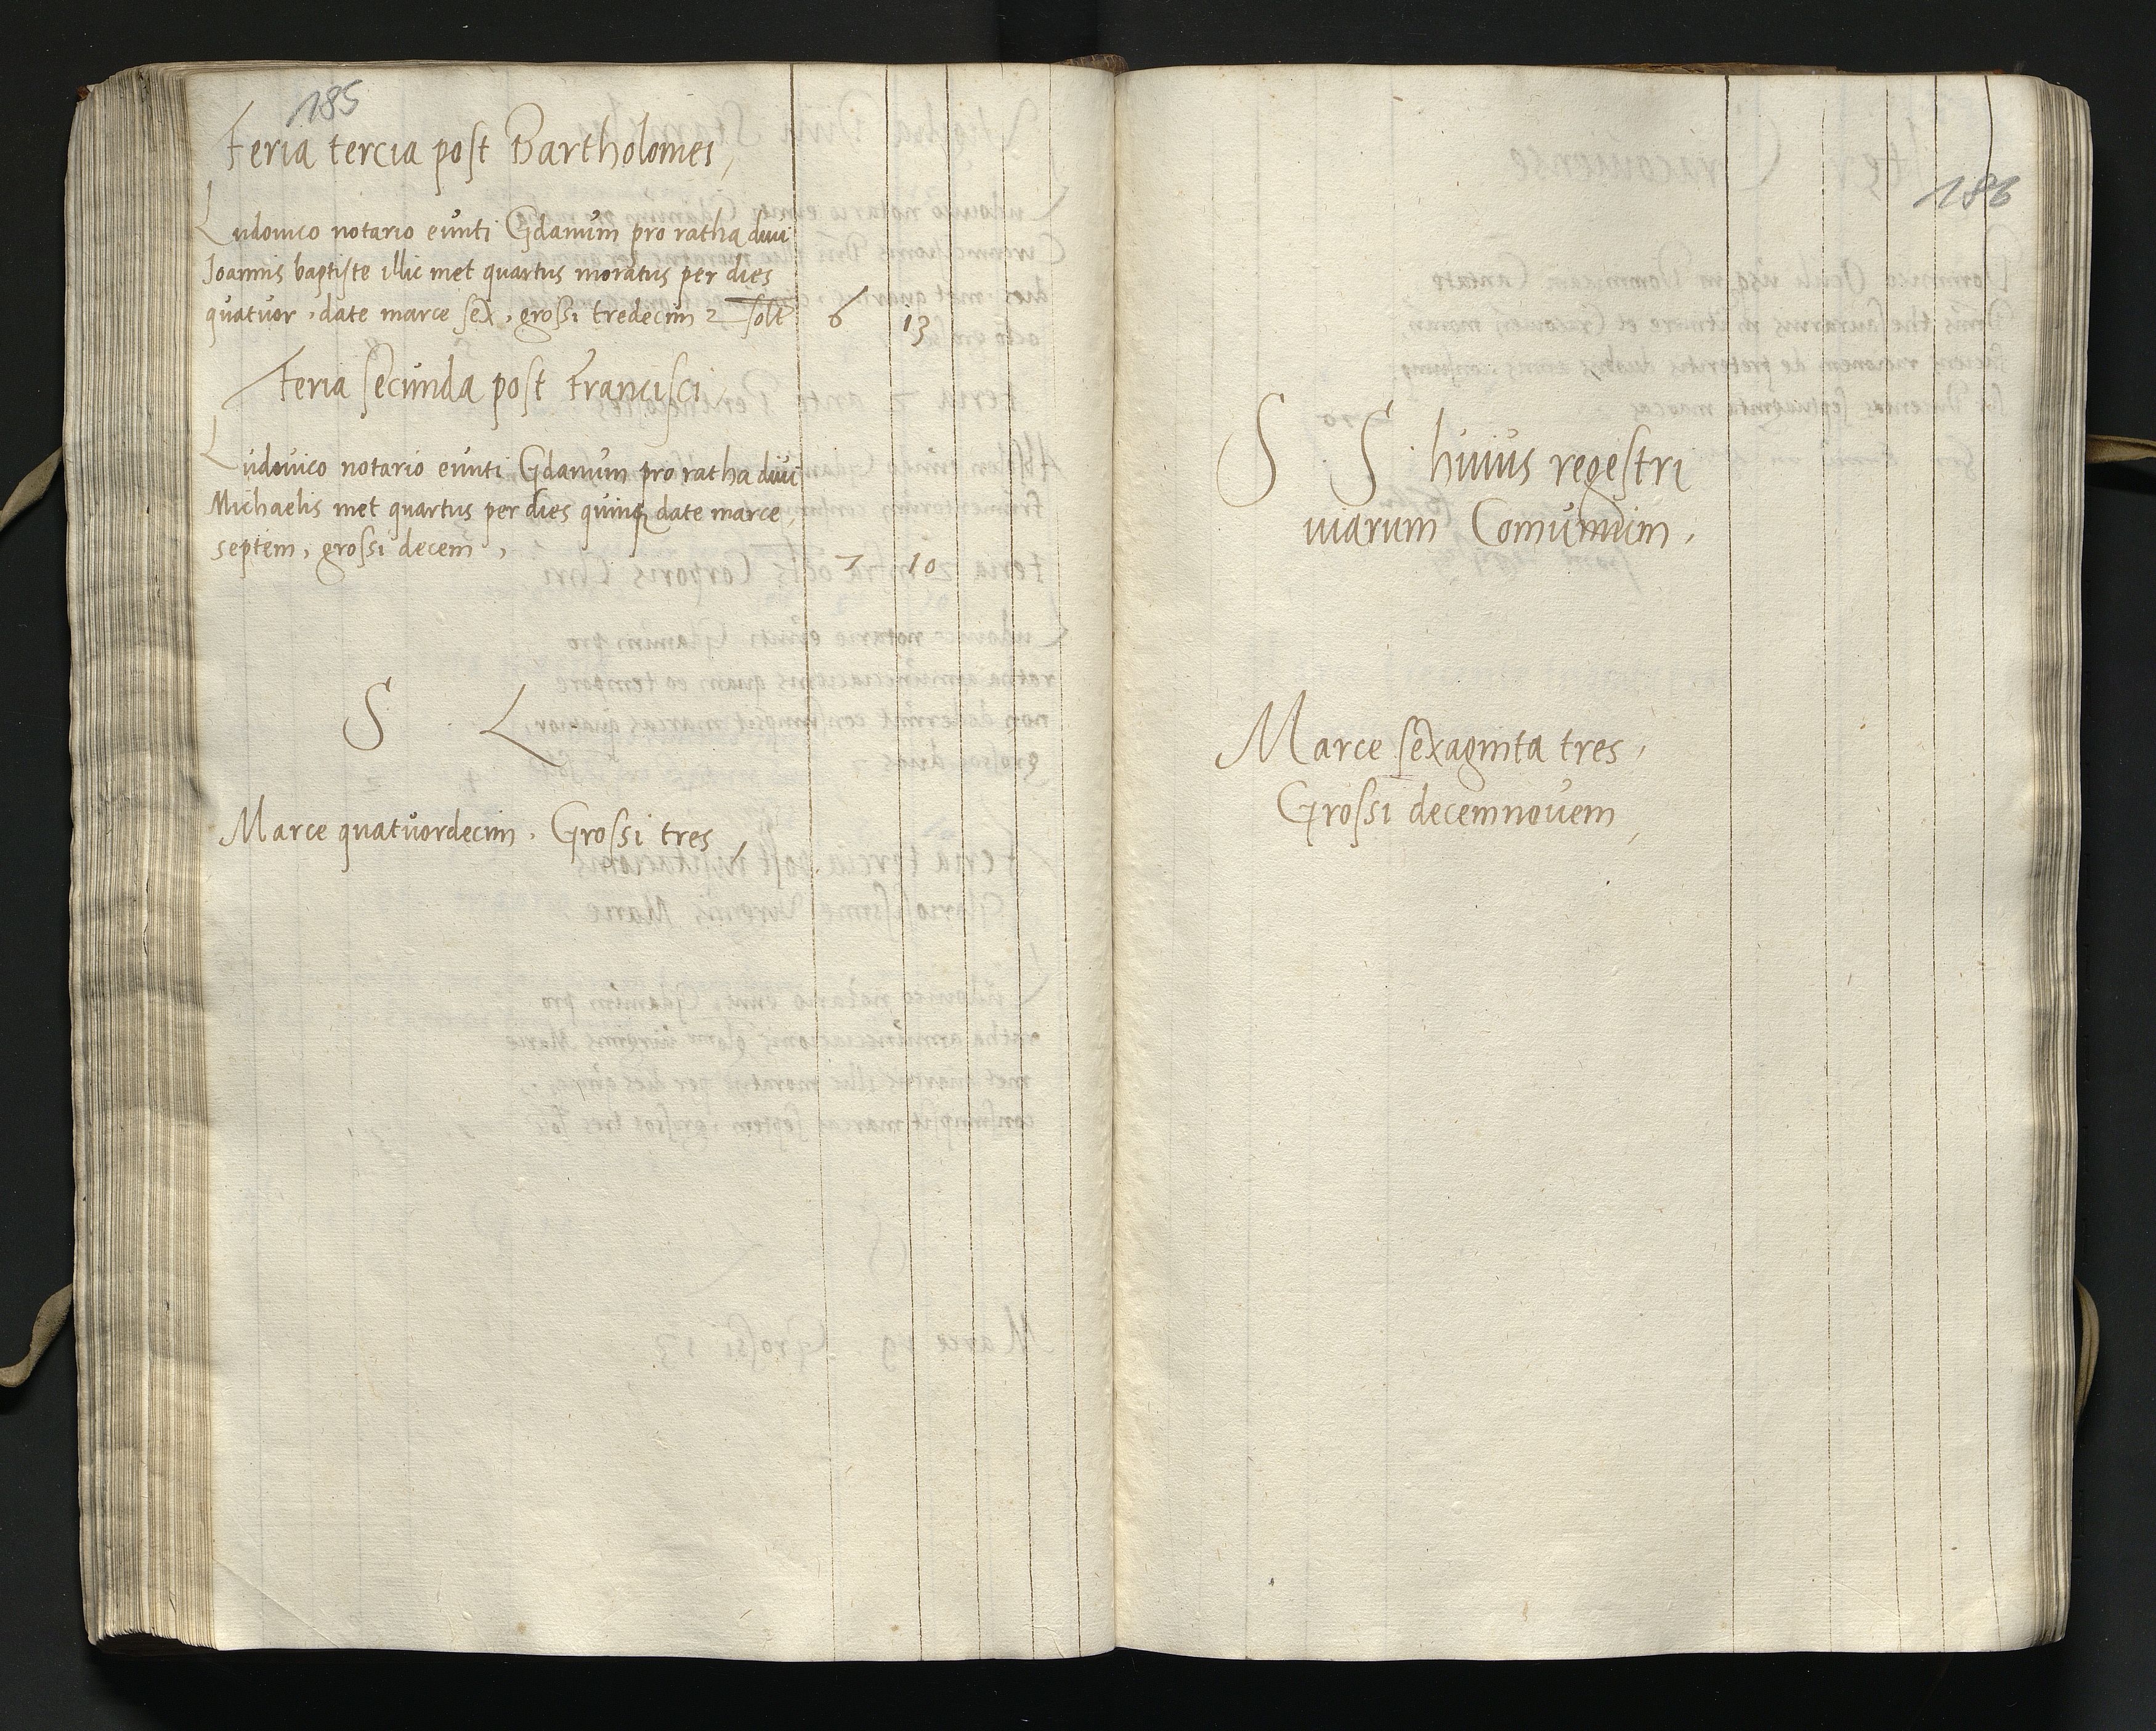 185
Feria tercia post Bartholomei,
Ludouico notario eunti Gdanum pro ratha diui
Joannis baptiste illic met quartus moratus per dies
quatuor, date marce sex, grossi tredecim 2 solt 6 13
Feria secunda post Francisci,
Ludouico notario eunti Gdanum pro ratha diui
Michaelis met quartus per dies quinq date marce,
septem, grossi decem, 7 10
S L
Marce quatuordecim. Grossi tres,
186
S S huius regestri
viarum Comunium,
Marce sexaginta tres,
Grossi decemnouem,